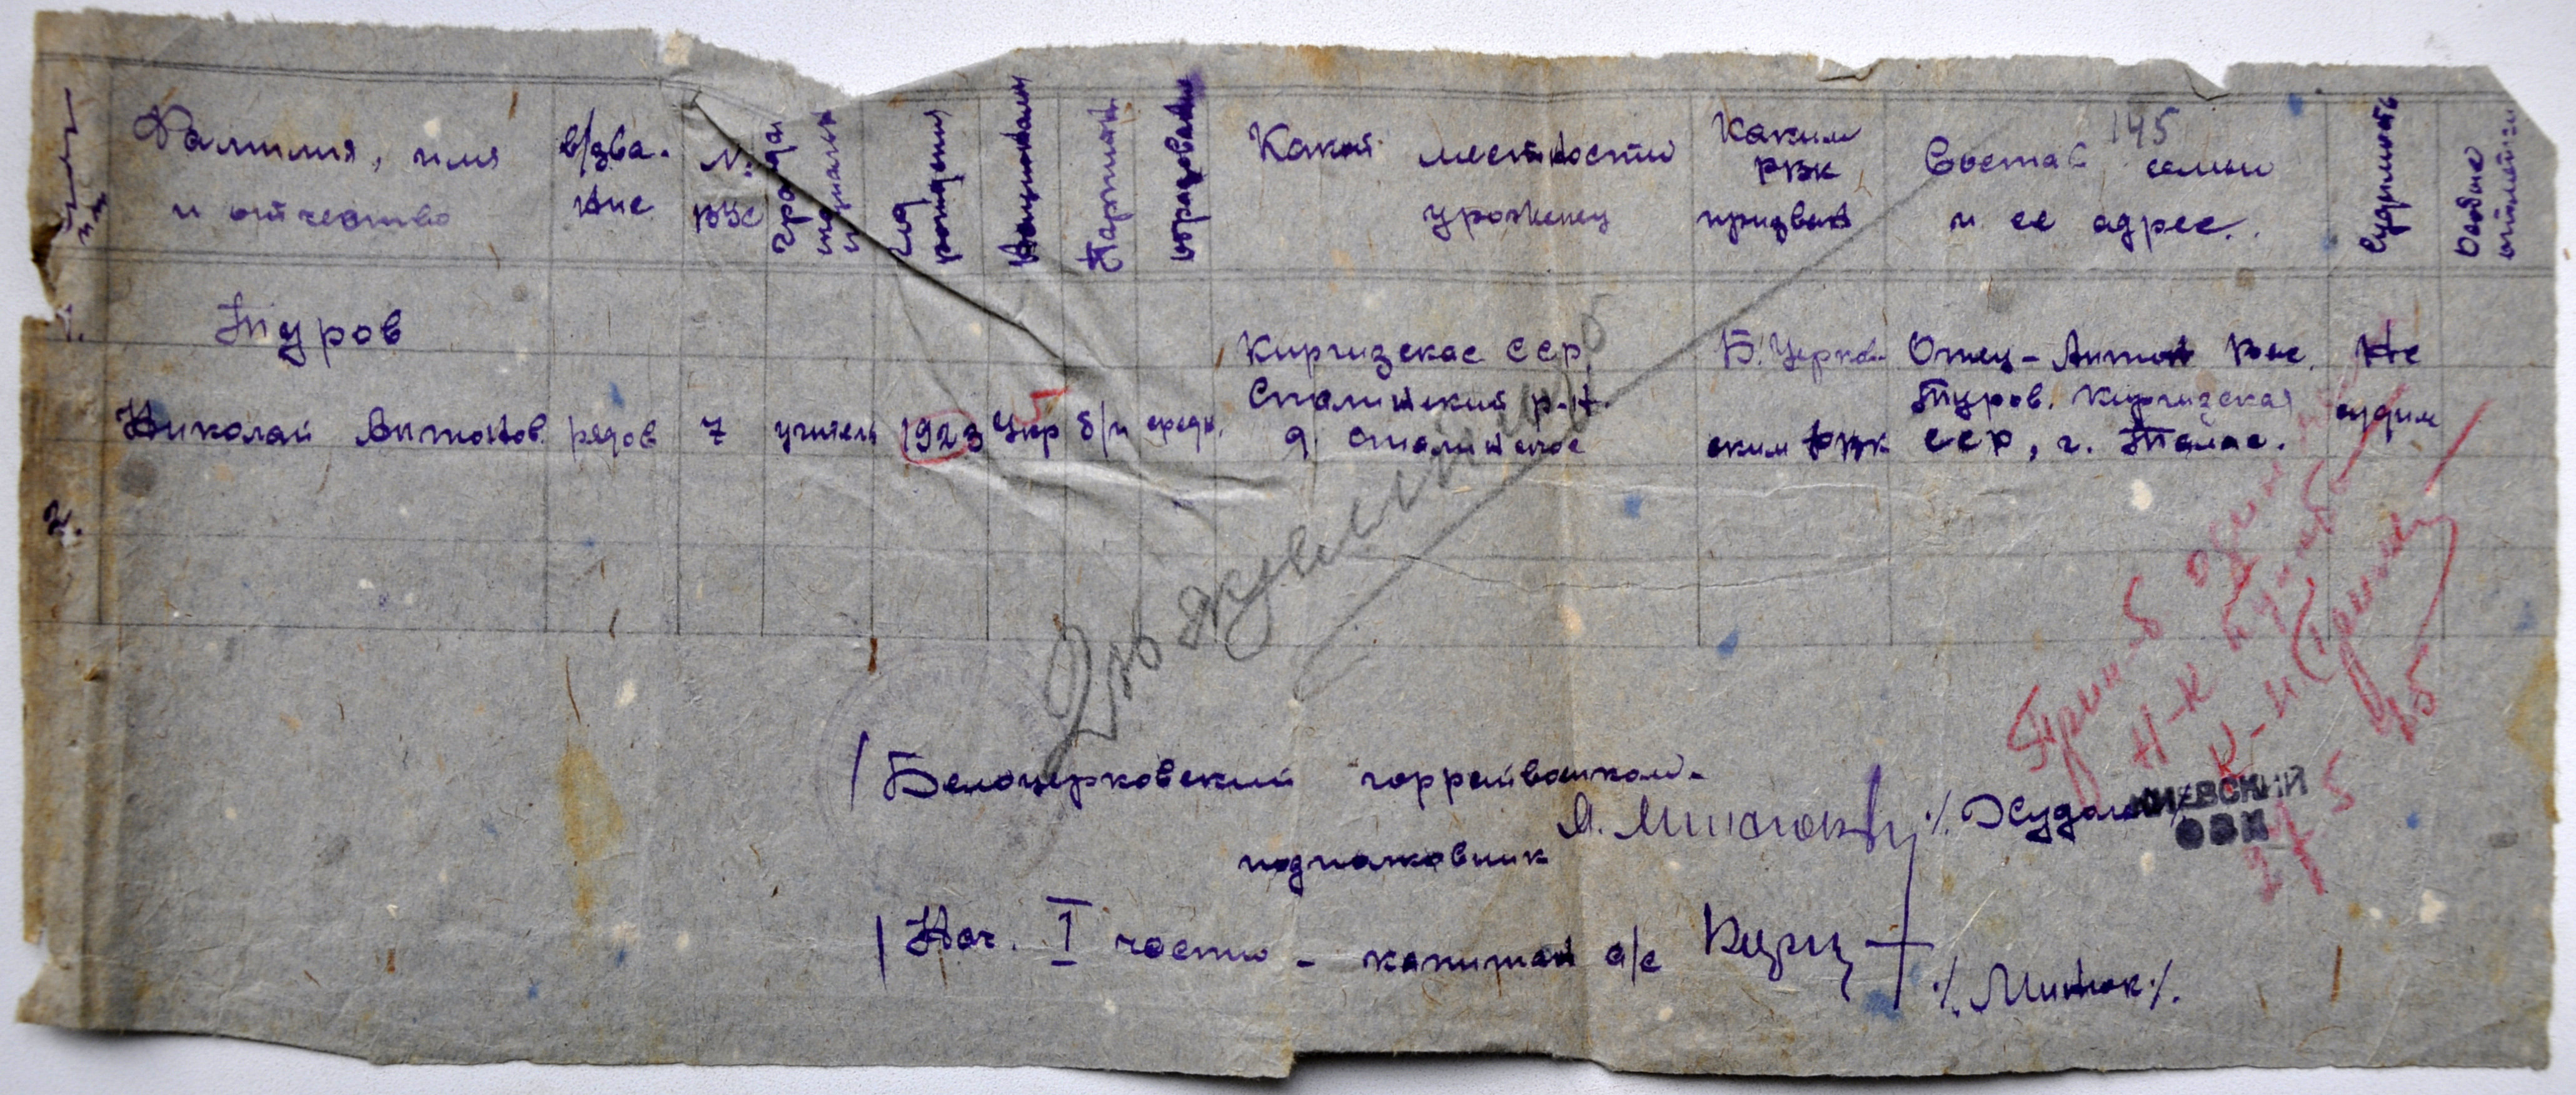 145
Фамилия, имя
и отчество
в/зва-
ние
№
ВУС
Граждан
специальн
Год
рождения
Национальн
Партийн
Образован
Какой местности
уроженец
Каким
РВК
призван
Состав семьи
и ее адрес.
Судимость
Особые
отметки
1.
Туров
Николай Антонов.
рядов
7
учитель
1923
Укр
б/п
средн.
Киргизская ССР,
Сталинский р-н.
д. Сталинское
Б. Церков-
ским РВК
Отец - Антон Вас.
Туров. Киргизская
ССР, г. Талас.
Не
судим
2.
/ Белоцерковский горрайвоенком-
подполковник
/ Нач. I части - капитан а/с
·/. Минюк ·/.
КИЕВСКИЙ
ОВК